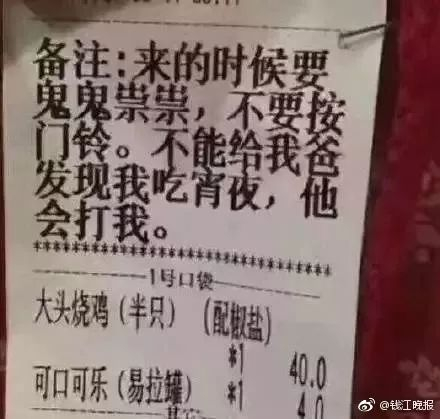 备注:来的时候要
鬼鬼祟祟，不要按
门铃。不能给我爸
发现我吃宵夜，他
会打我。
********************************
1号口袋
大头烧鸡（半只）（配椒盐）
*1 40.0
可口可乐（易拉罐） *1 4.0
其它
@钱江晚报